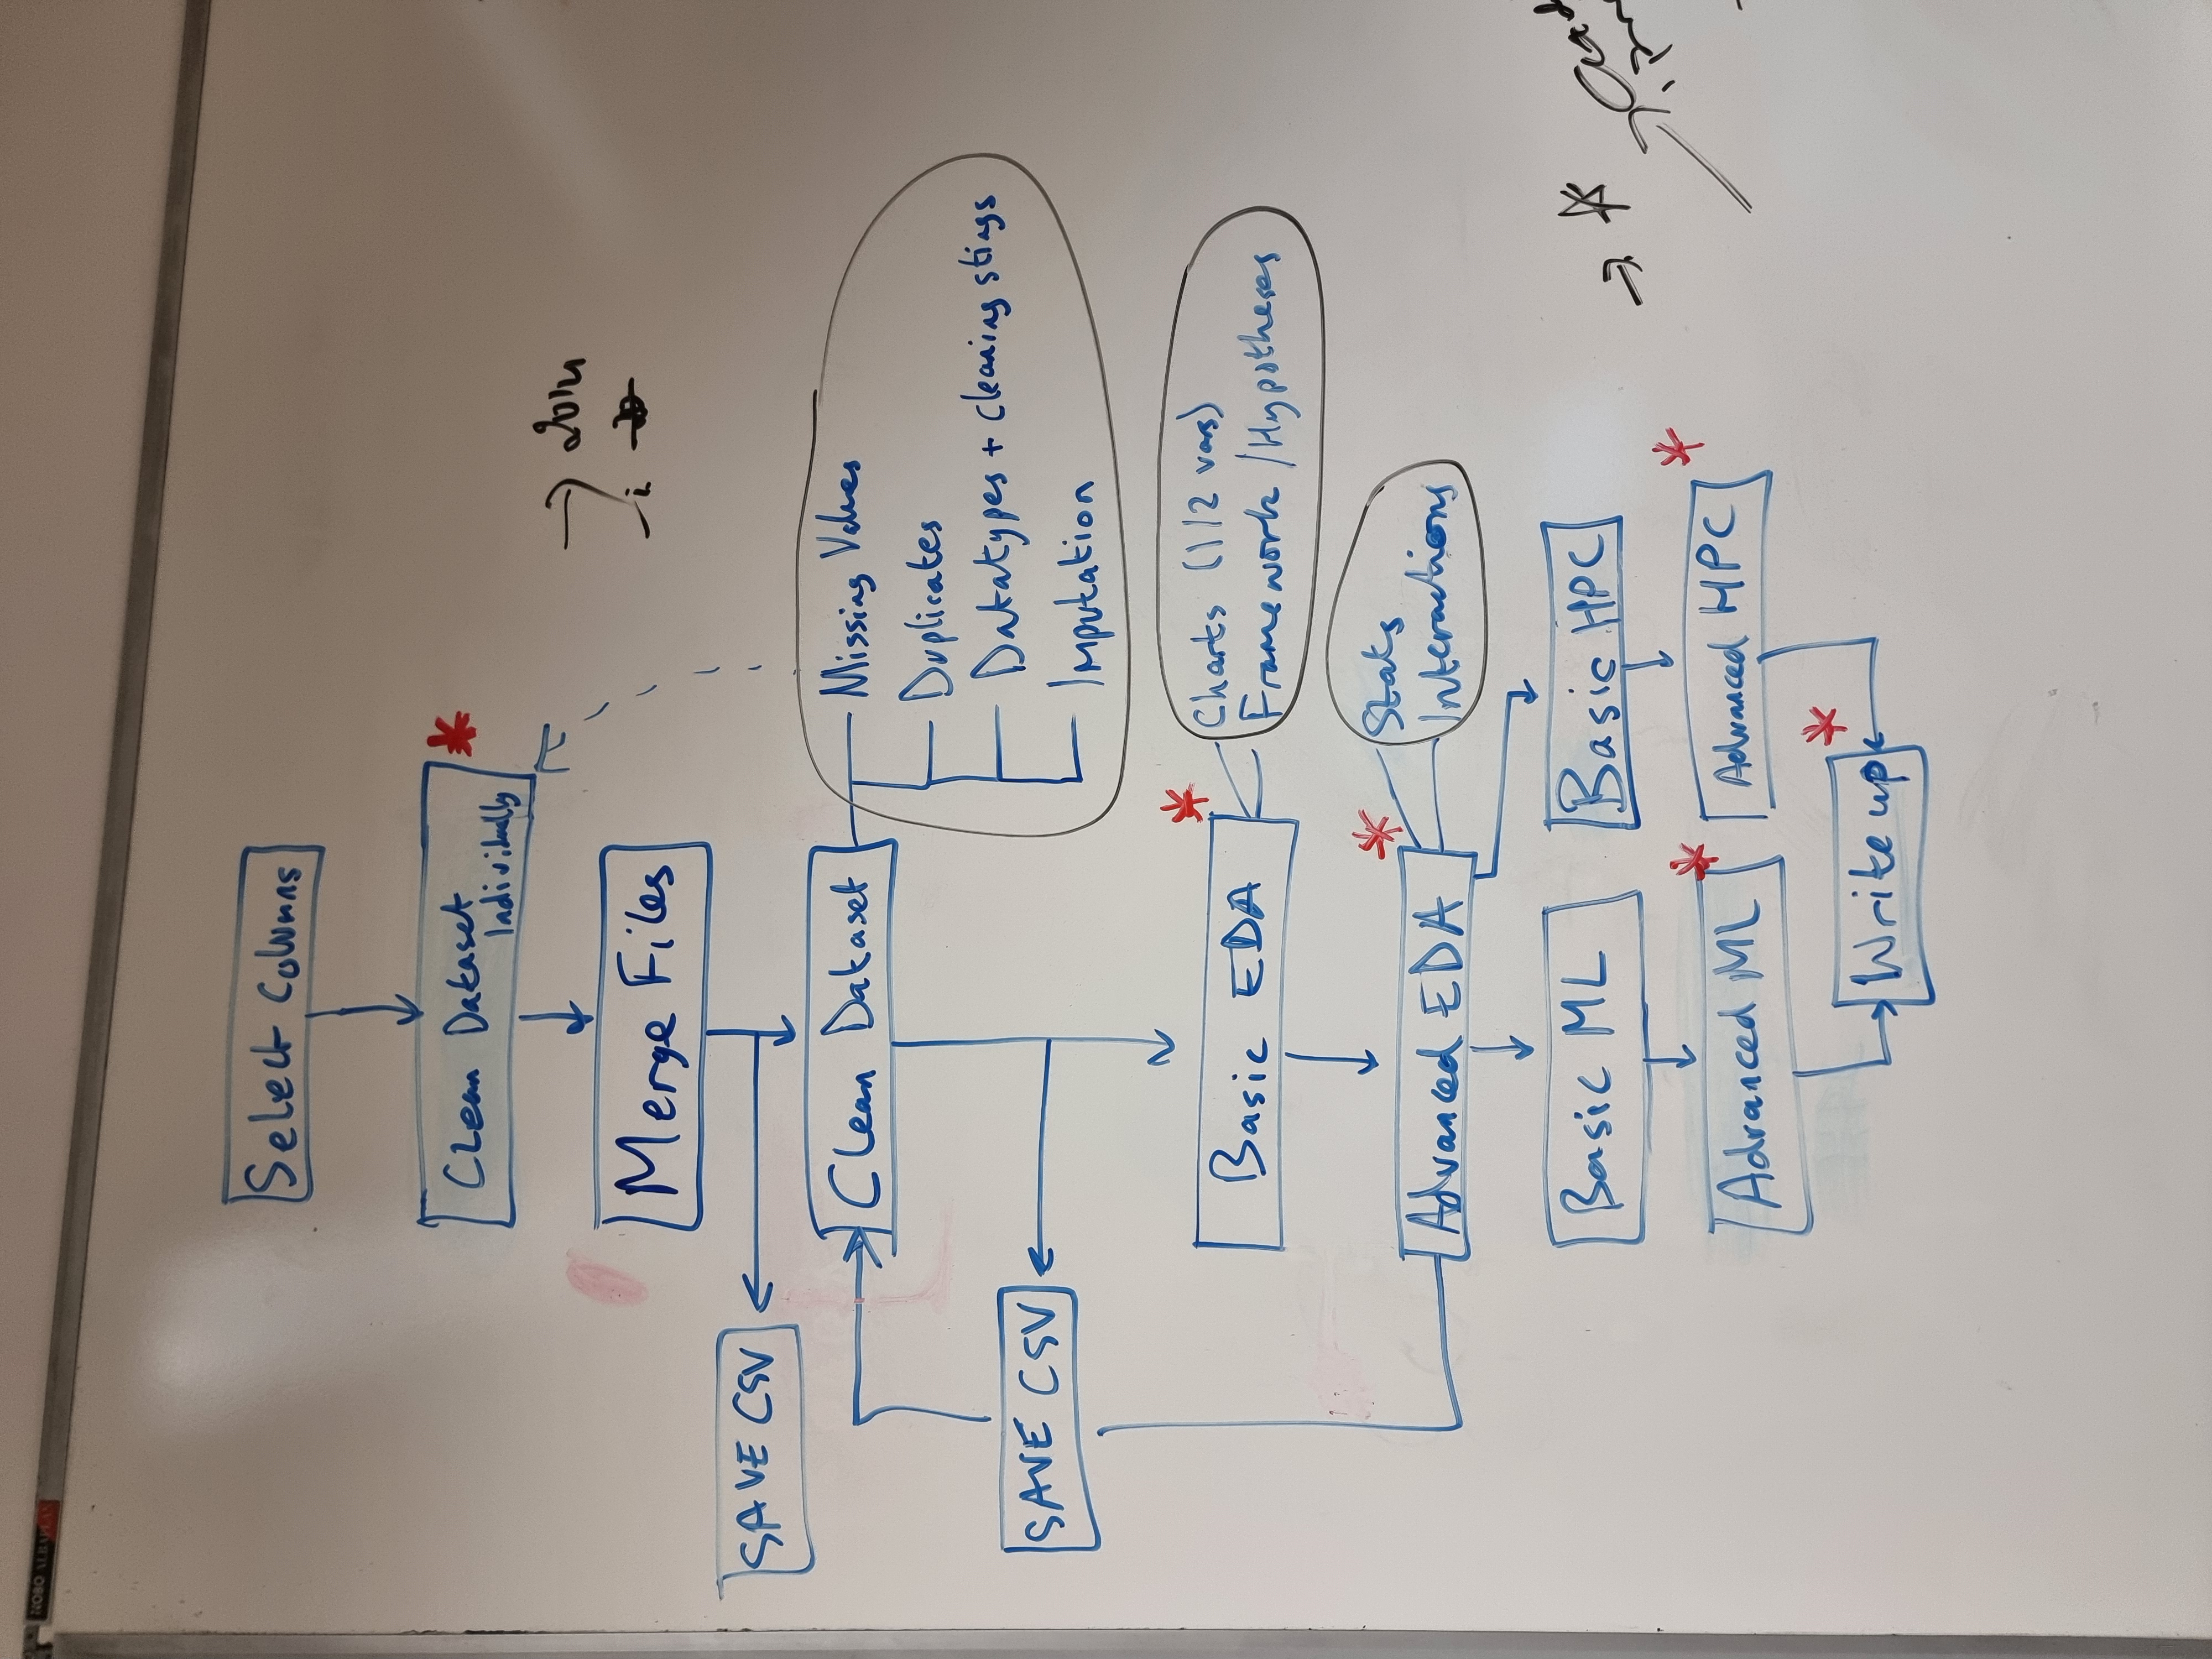 NOBO ALBAPLAN
Select Columns
Clean Dataset
Individually
Merge Files
SAVE CSV
Clean Dataset
Missing Values
Duplicates
Datatypes + cleaning stings
Imputation
SAVE CSV
Basic EDA
Charts (1/2 vars)
Framework / Hypotheses
Advanced EDA
Stats
Interactions
Basic ML
Basic HPC
Advanced ML
Advanced HPC
Write up